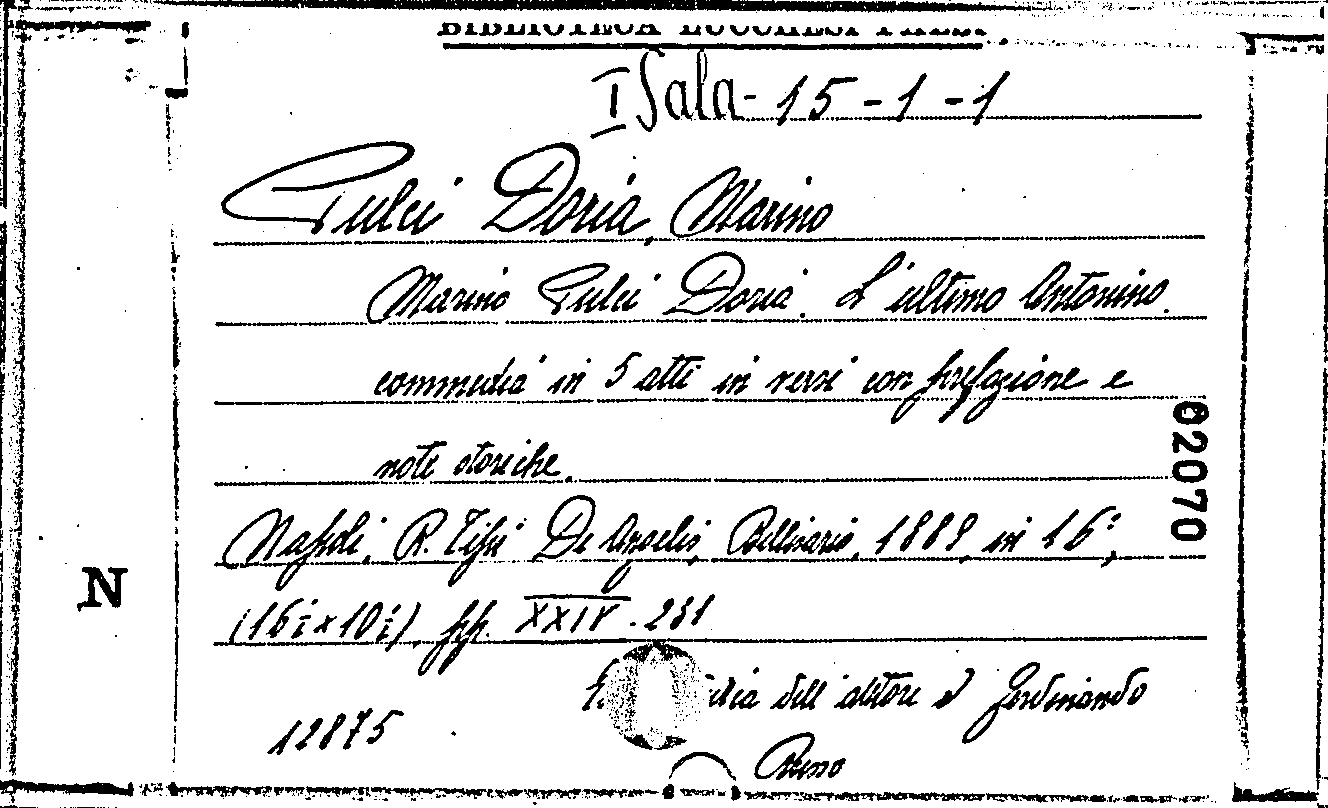 BIBLIOTECA LUCCHESI PALLI
I Sala - 15 - 1 - 1
Pulci Doria, Marino
Marino Pulci Doria. L'ultimo Antonino.
commedia in 5 atti in versi con prefazione e
note storiche.
Napoli, R. Tipi De Angelis, Bellisario, 1889, in 16°,
(16 i x 10 i), pp. XXIV - 231
dell'
12875
N
02070